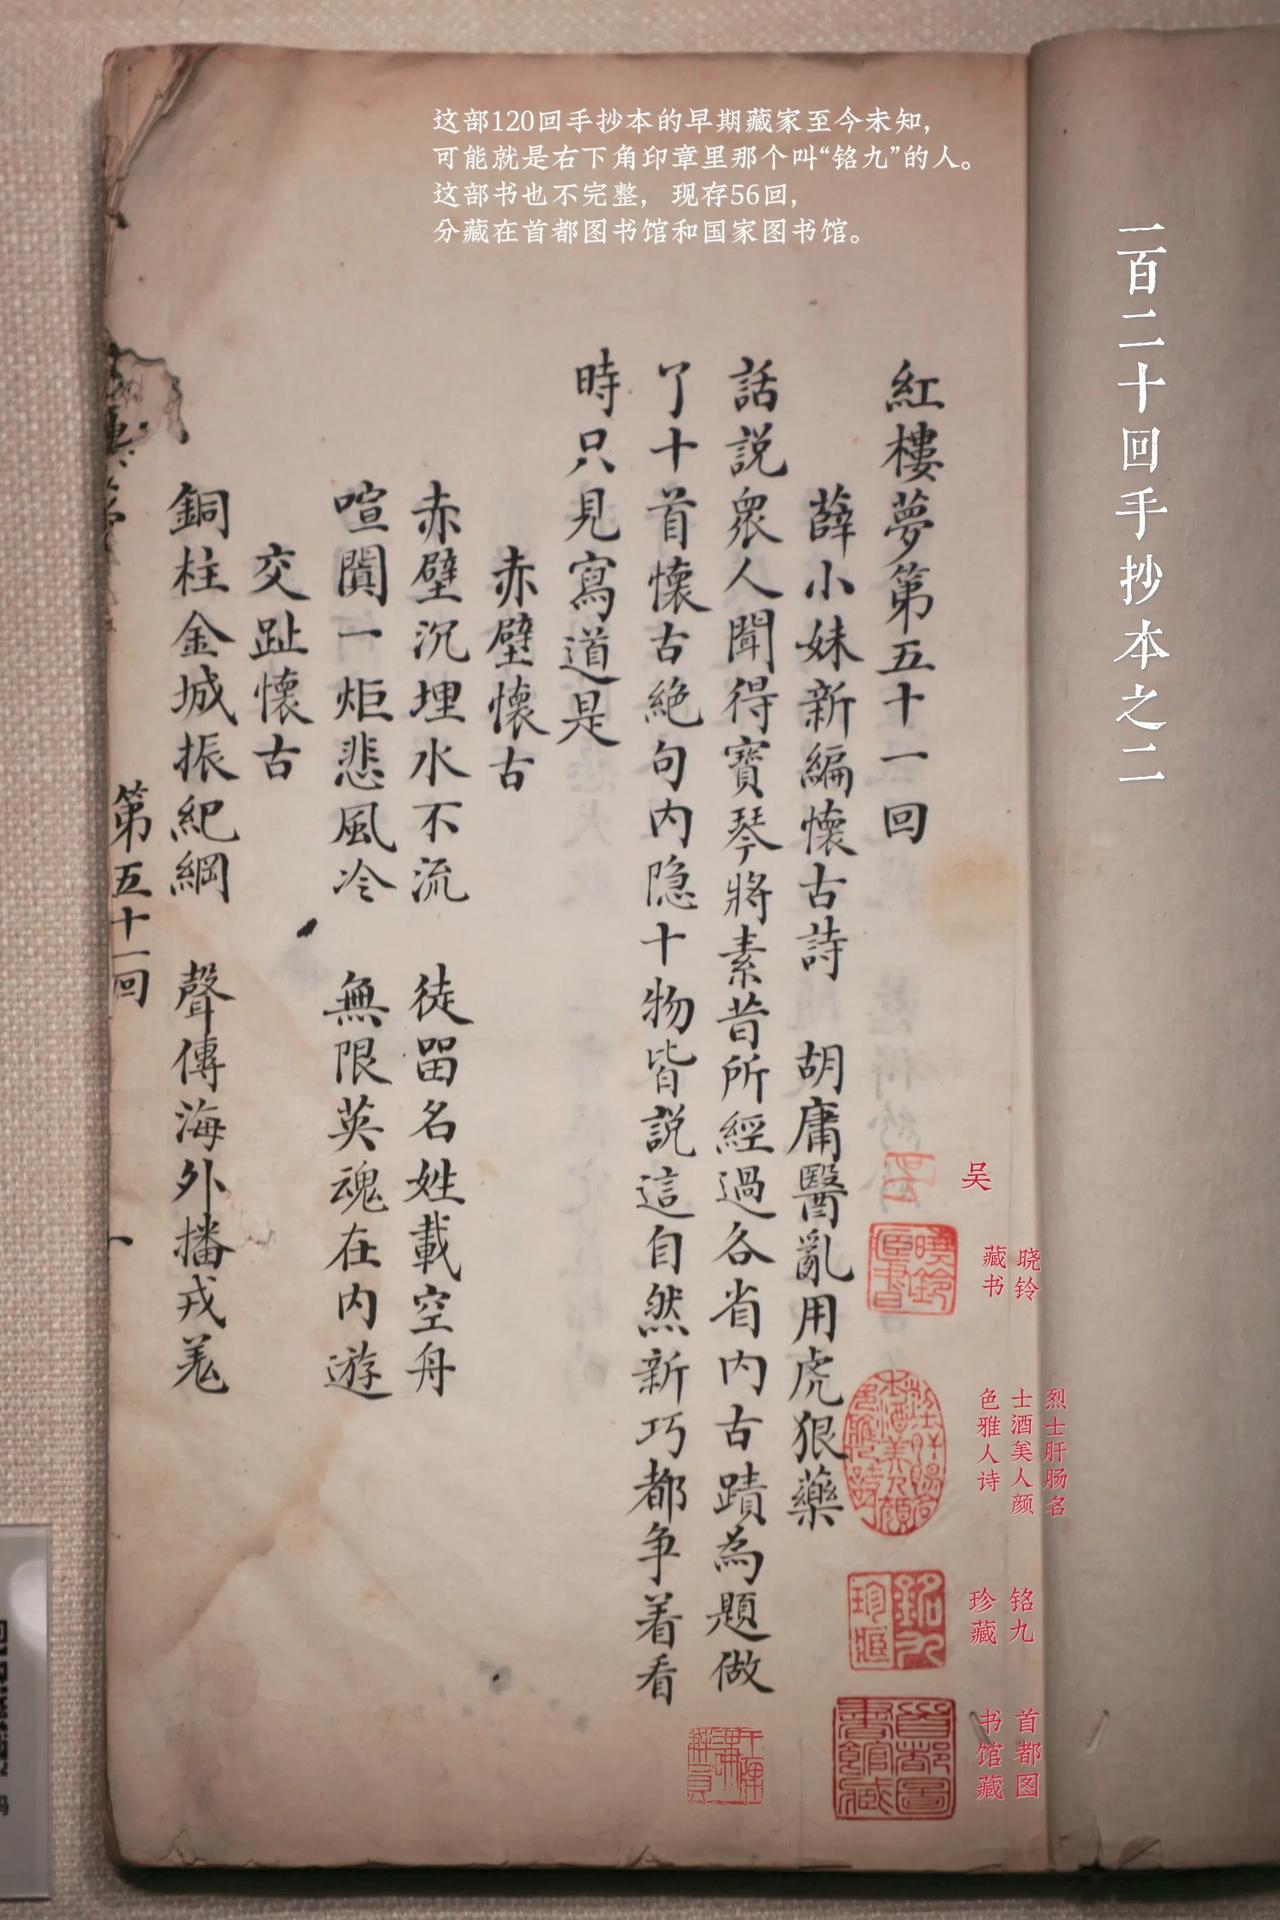 这部120回手抄本的早期藏家至今未知，
可能就是右下角印章里那个叫“铭九”的人。
这部书也不完整，现存56回，
分藏在首都图书馆和国家图书馆。
一百二十回手抄本之二
紅樓夢第五十一回
薛小妹新編懷古詩　胡庸醫亂用虎狼藥
話説衆人聞得寶琴將素昔所經過各省内古蹟為題做
了十首懷古絶句内隐十物皆説這自然新巧都争着看
時只見寫道是
赤壁懷古
赤壁沉埋水不流　徒留名姓載空舟
喧闐一炬悲風冷　無限英魂在内遊
交趾懷古
銅柱金城振紀綱　聲傳海外播戎羌
第五十一回
吴
晓铃
藏书
烈士肝肠名
士酒美人颜
色雅人诗
铭九
珍藏
首都图
书馆藏
吴
曉鈴
臧書
銘九
珍藏
首都圖
書館藏